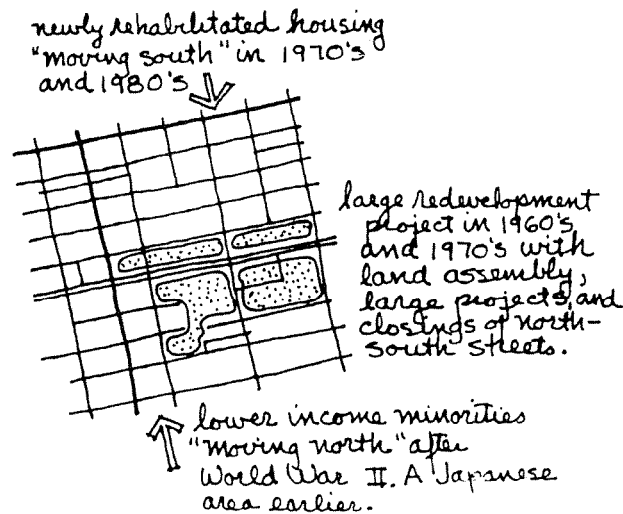 newly rehabilitated housing
"moving south" in 1970's
and 1980's
large redevelopment
project in 1960's
and 1970's with
land assembly,
large projects, and
closings of north-
south streets.
lower income minorities
"moving north" after
World War II. A Japanese
area earlier.